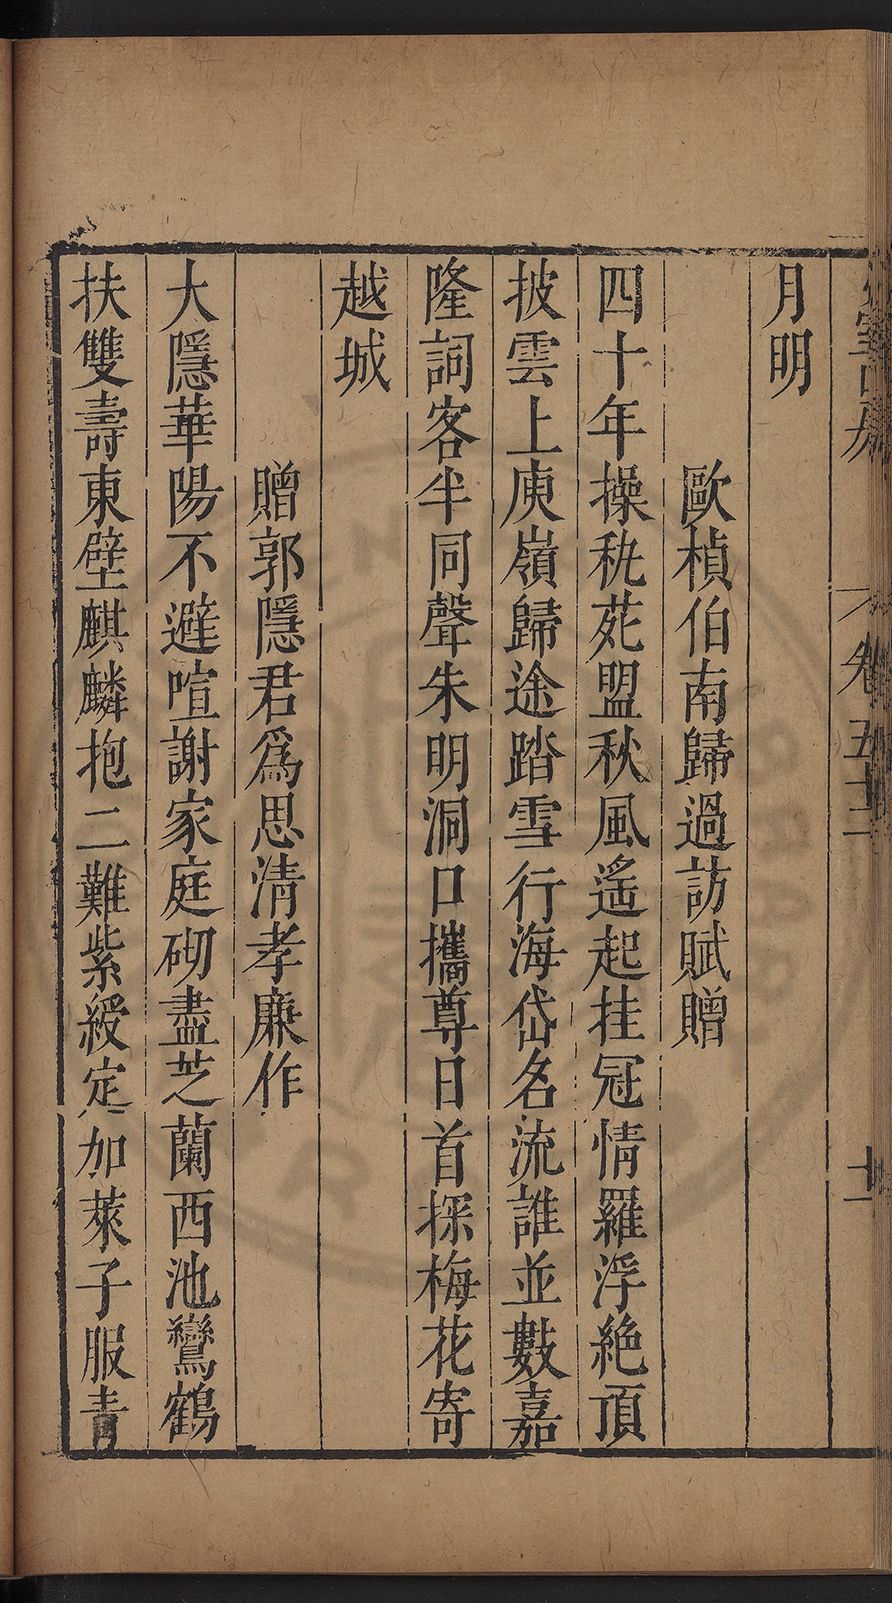 卷五十二
十一
月明
歐楨伯南歸過訪賦贈
四十年操秇苑盟秋風遙起挂冠情羅浮絶頂
披雲上庾嶺歸途踏雪行海岱名流誰並數嘉
隆詞客半同聲朱明洞口攜尊日首探梅花寄
越城
贈郭隱君爲思清孝廉作
大隱華陽不避喧謝家庭砌盡芝蘭西池鸞鶴
扶雙壽東壁麒麟抱二難紫綬定加萊子服青